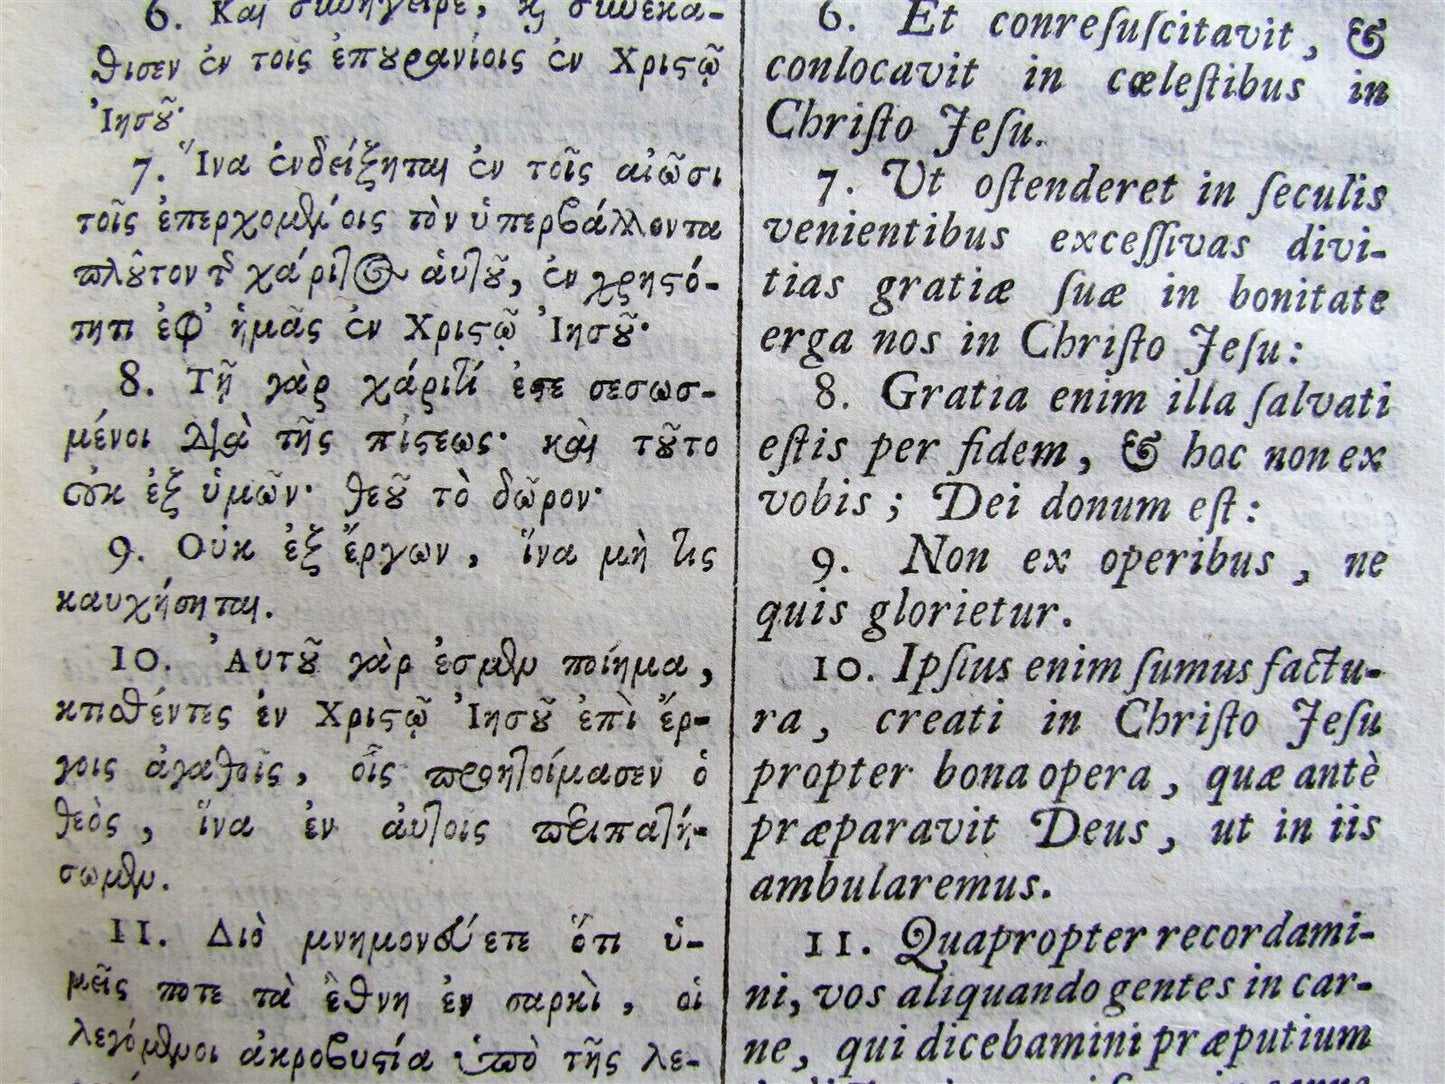 6. Καὶ συνήγειρε, ϗ συνεκά-
θισεν ἐν τοῖς ἐπουρανίοις ἐν Χριστῷ
Ἰησοῦ·
7. Ἵνα ἐνδείξηται ἐν τοῖς αἰῶσι
τοῖς ἐπερχομένοις τὸν ὑπερβάλλοντα
πλοῦτον τῆς χάριτος αὑτοῦ, ἐν χρηστό-
τητι ἐφ' ἡμᾶς ἐν Χριστῷ Ἰησοῦ·
8. Τῇ γὰρ χάριτί ἐστε σεσωσ-
μένοι διὰ τῆς πίστεως· καὶ τοῦτο
οὐκ ἐξ ὑμῶν· θεοῦ τὸ δῶρον·
9. Οὐκ ἐξ ἔργων, ἵνα μὴ τις
καυχήσηται.
10. Αὐτοῦ γὰρ ἐσμεν ποίημα,
κτισθέντες ἐν Χριστῷ Ἰησοῦ ἐπὶ ἔρ-
γοις ἀγαθοῖς, οἷς προητοίμασεν ὁ
θεὸς, ἵνα ἐν αὐτοῖς περιπατή-
σωμεν.
11. Διὸ μνημονεύετε ὅτι ὑ-
μεῖς ποτε τὰ ἔθνη ἐν σαρκὶ, οἱ
λεγόμενοι ἀκροβυστία ὑπὸ τῆς λε-
6. Et conreſuſcitavit, &
conlocavit in cœleſtibus in
Chriſto Jeſu.
7. Ut oſtenderet in ſeculis
venientibus exceſſivas divi-
tias gratiæ ſuæ in bonitate
erga nos in Chriſto Jeſu:
8. Gratia enim illa ſalvati
eſtis per fidem, & hoc non ex
vobis; Dei donum eſt:
9. Non ex operibus, ne
quis glorietur.
10. Ipſius enim ſumus factu-
ra, creati in Chriſto Jeſu
propter bona opera, quæ antè
præparavit Deus, ut in iis
ambularemus.
11. Quapropter recordami-
ni, vos aliquando gentes in car-
ne, qui dicebamini præputium